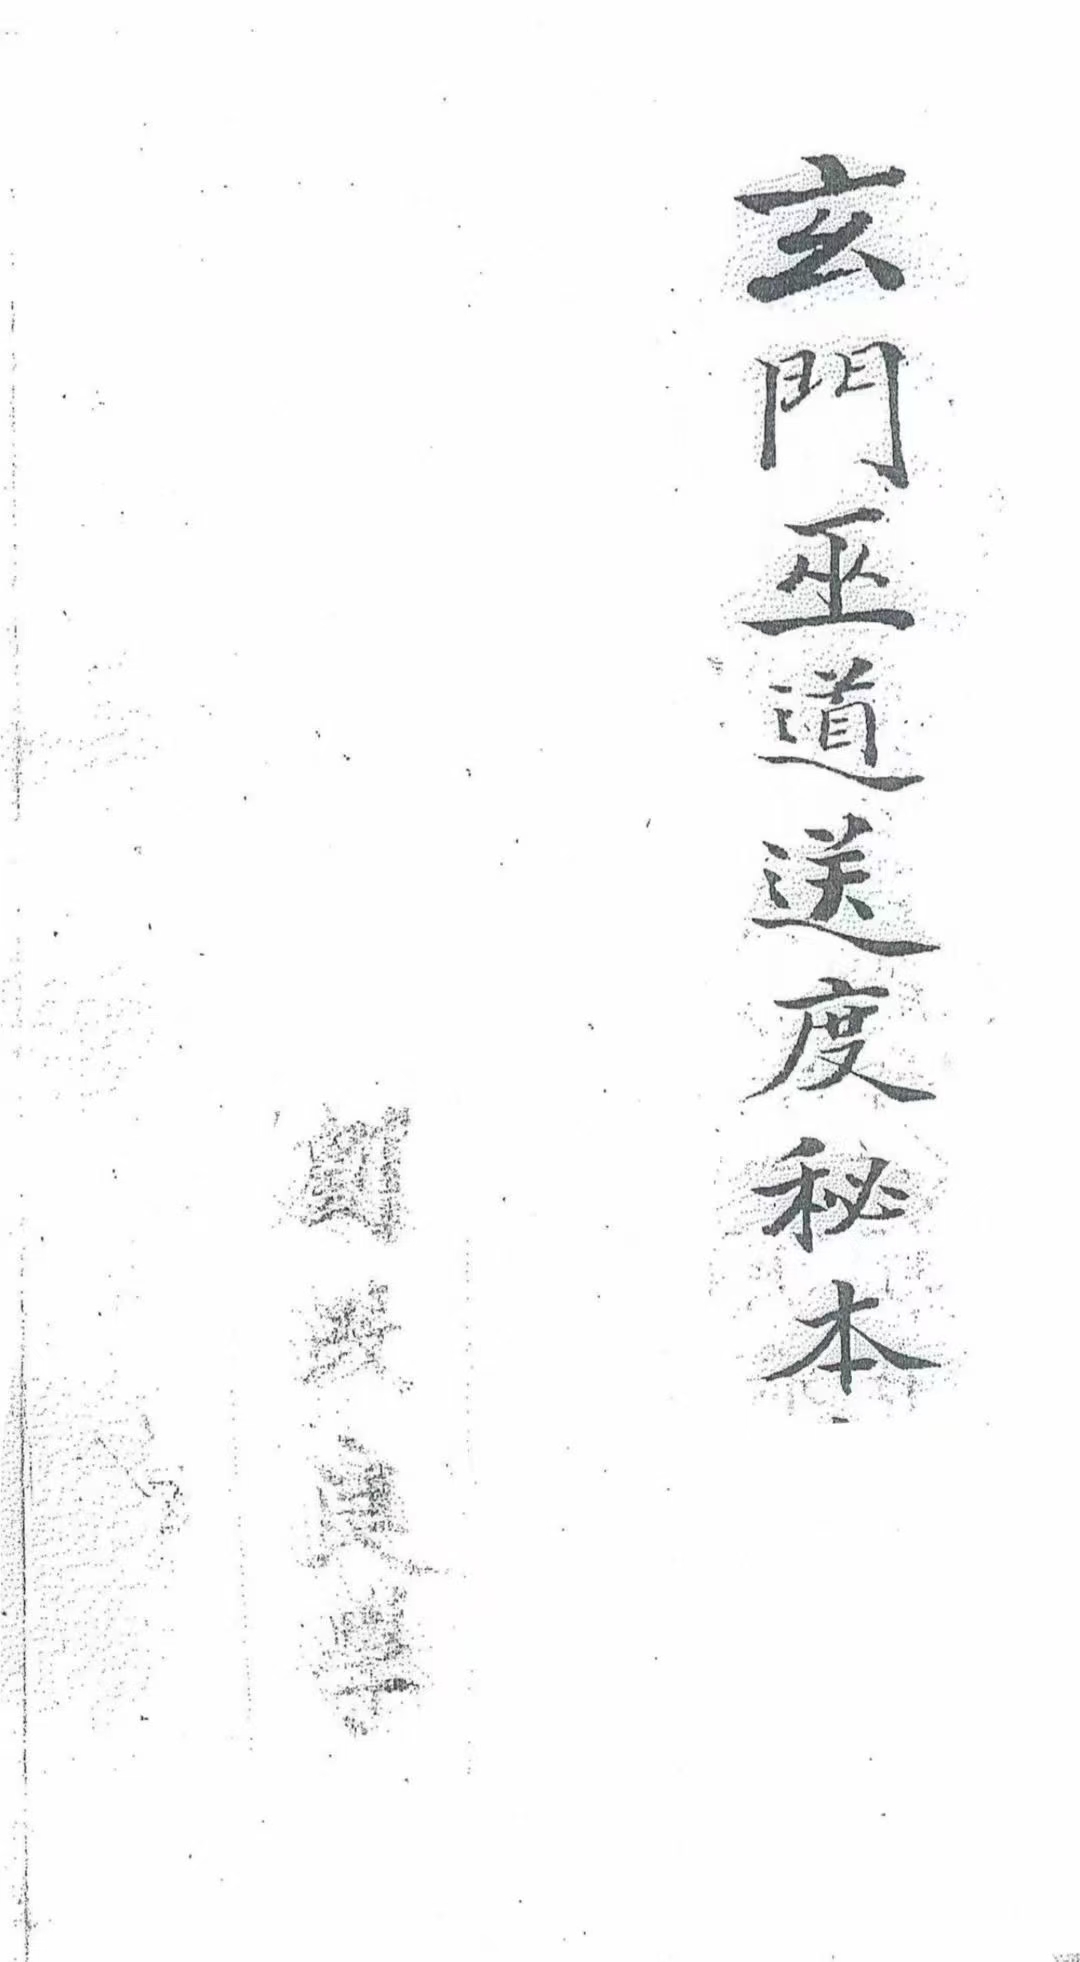 玄門巫道送度秘本